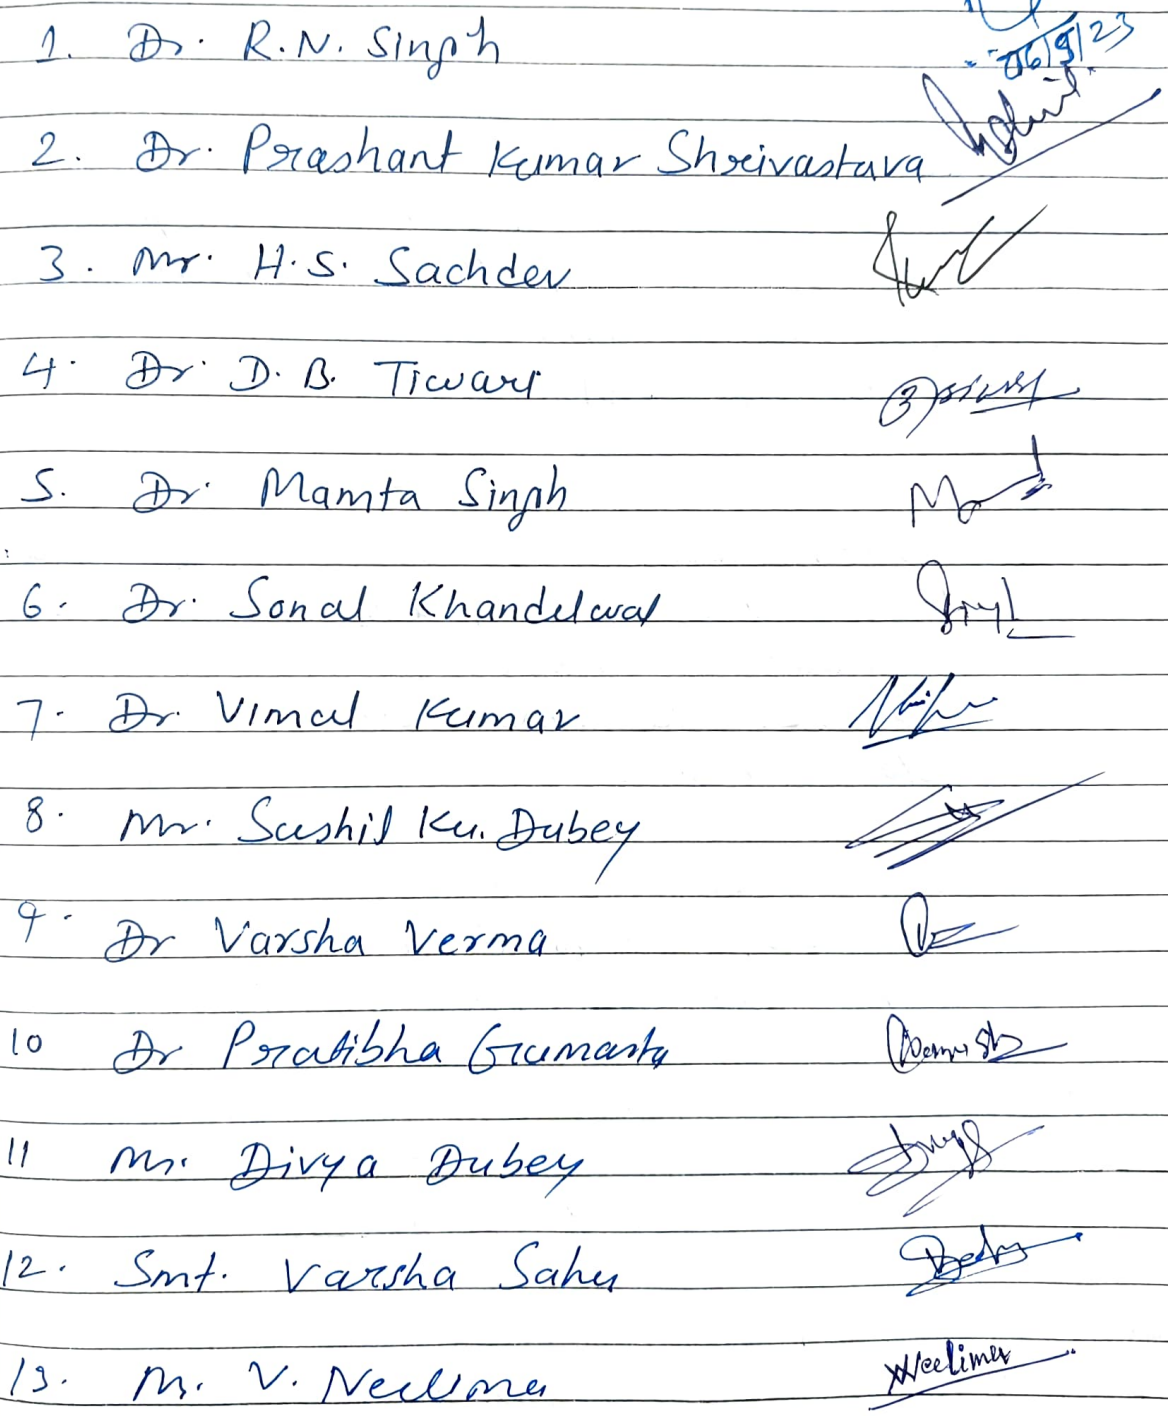 1. Dr. R.N. Singh
06/9/23
2. Dr. Prashant Kumar Shrivastava
3. Mr. H.S. Sachdev
4. Dr. D.B. Tiwari
5. Dr. Mamta Singh
6. Dr. Sonal Khandelwal
7. Dr. Vimal Kumar
8. Mr. Sushil Ku. Dubey
9. Dr Varsha Verma
10 Dr Pratibha Gumasta
11 Ms. Divya Dubey
12. Smt. Varsha Sahu
13. M. V. Neelima Neelima